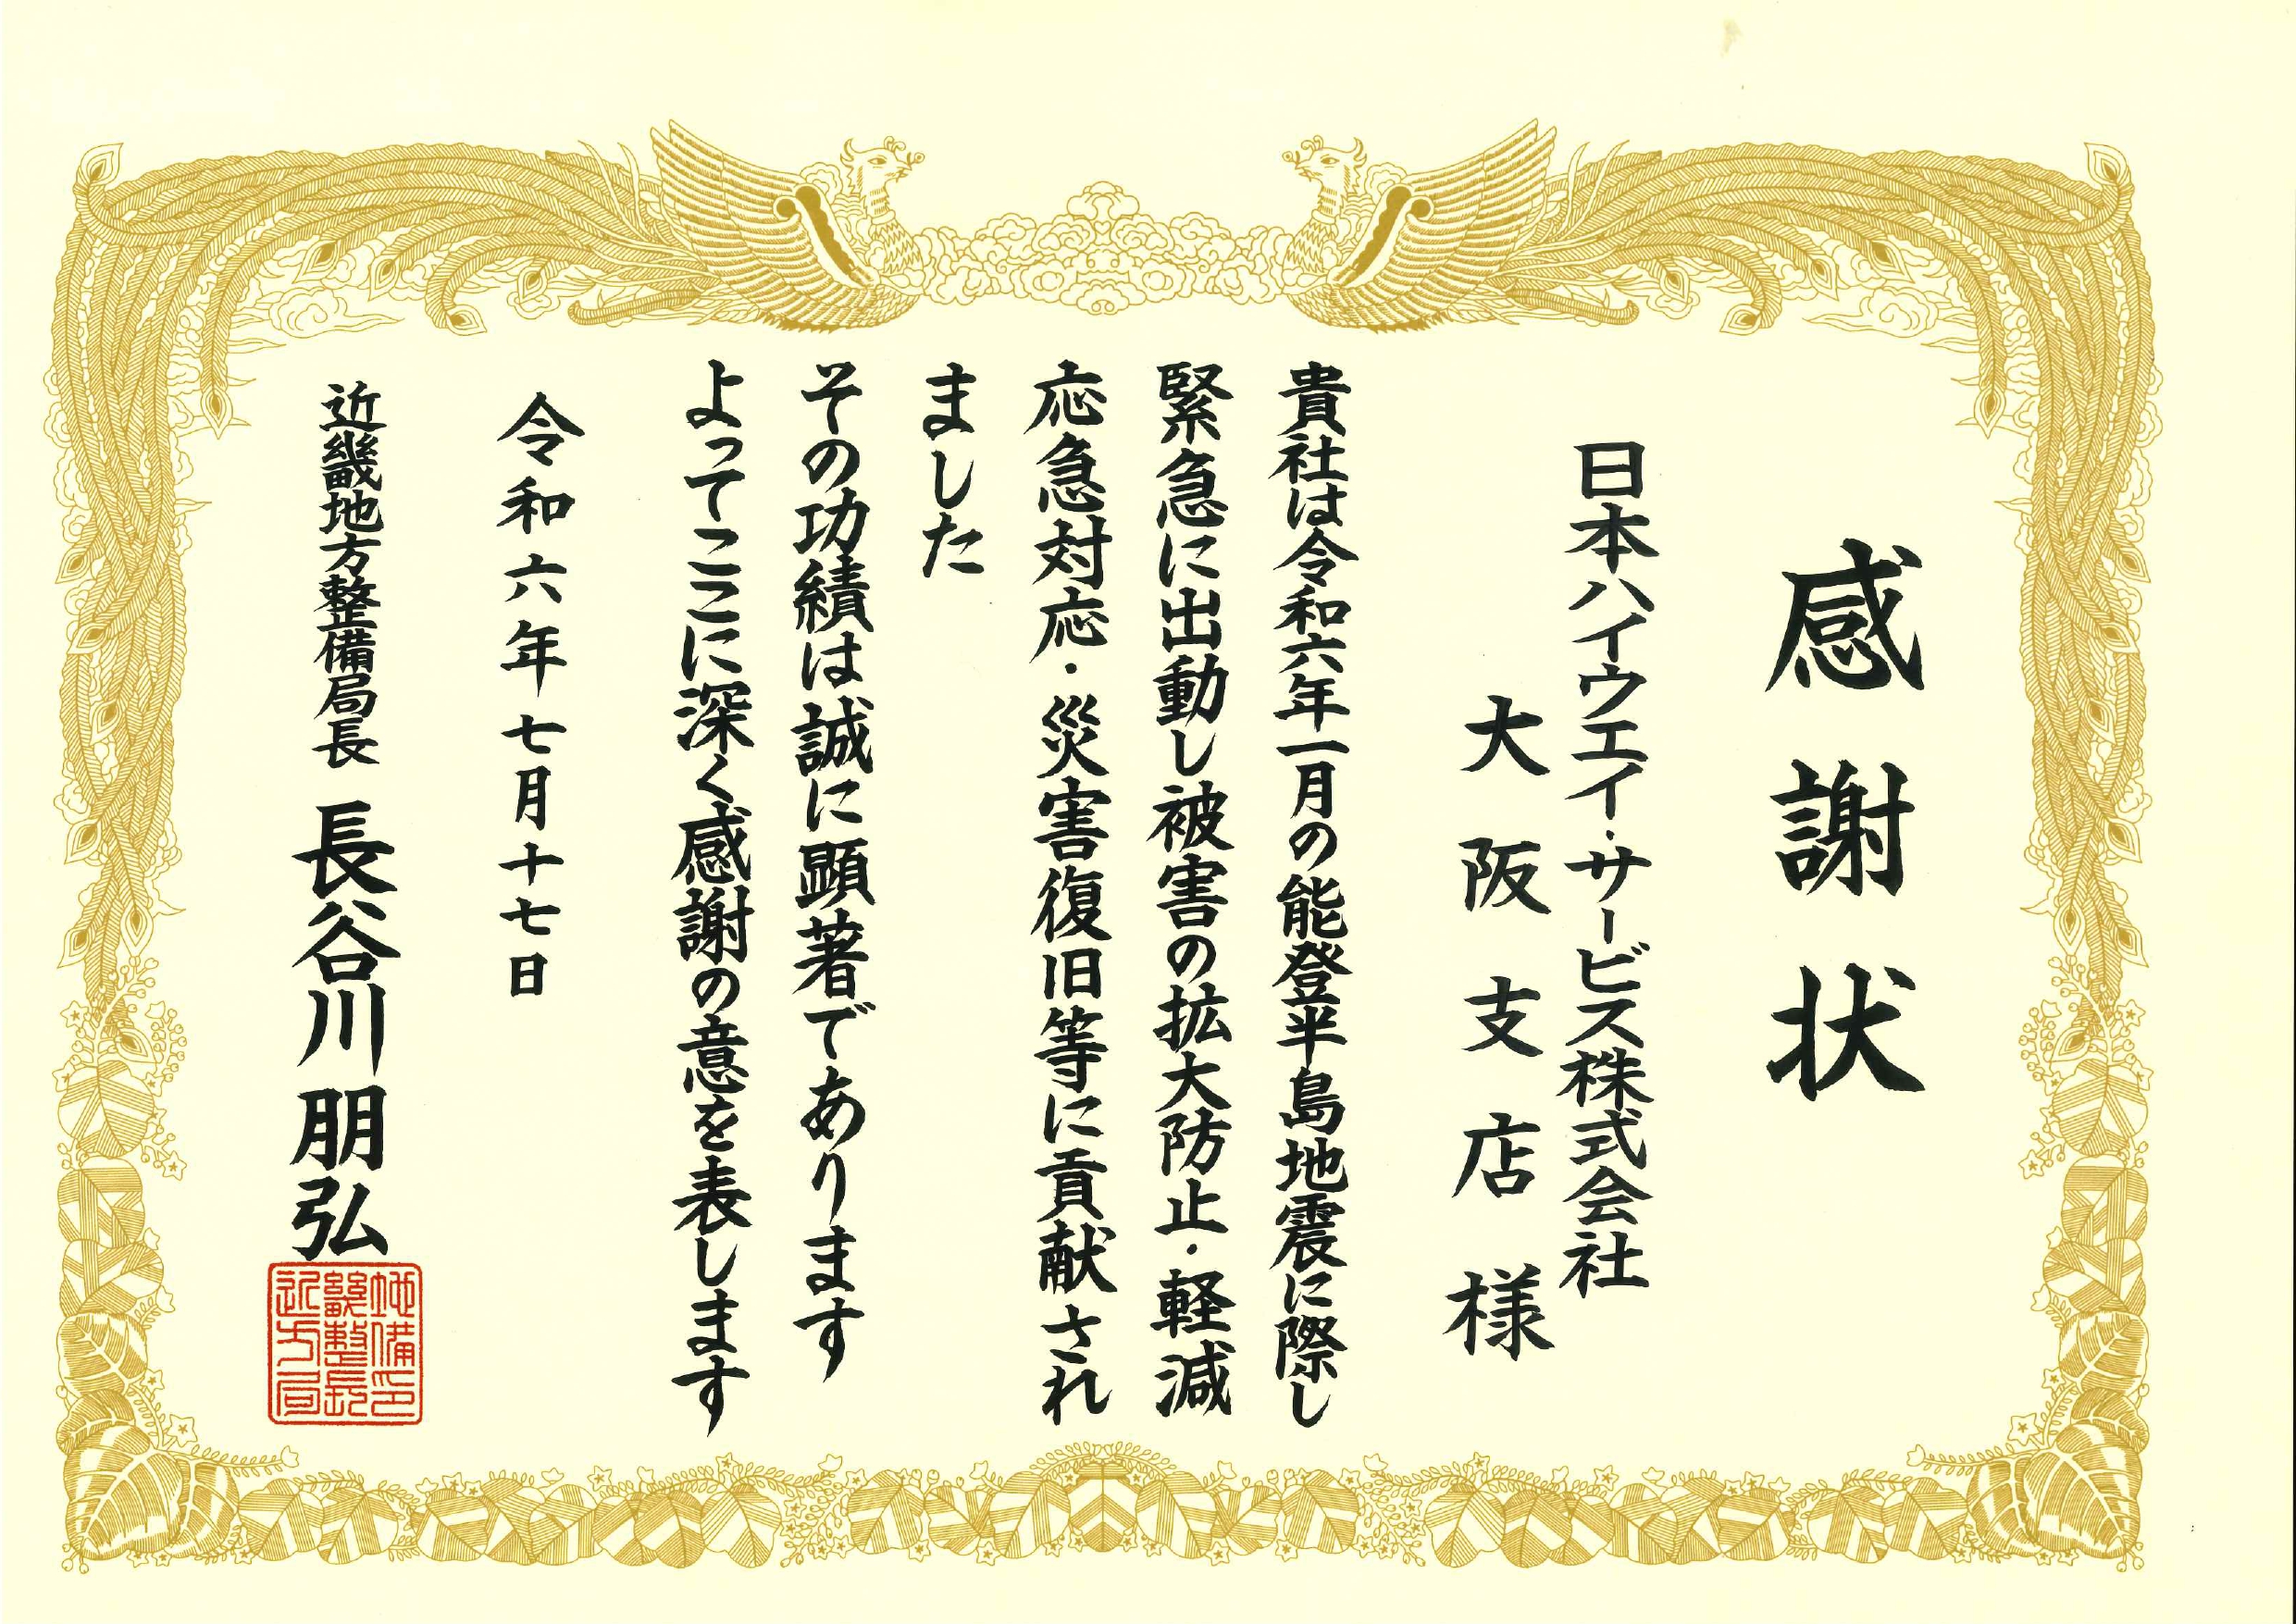 感謝状
日本ハイウエイ・サービス株式会社
大阪支店様
貴社は令和六年一月の能登半島地震に際し
緊急に出動し被害の拡大防止・軽減
応急対応・災害復旧等に貢献され
ました
その功績は誠に顕著であります
よってここに深く感謝の意を表します
令和六年七月十七日
近畿地方整備局長 長谷川朋弘
地備印
畿整長
近方局